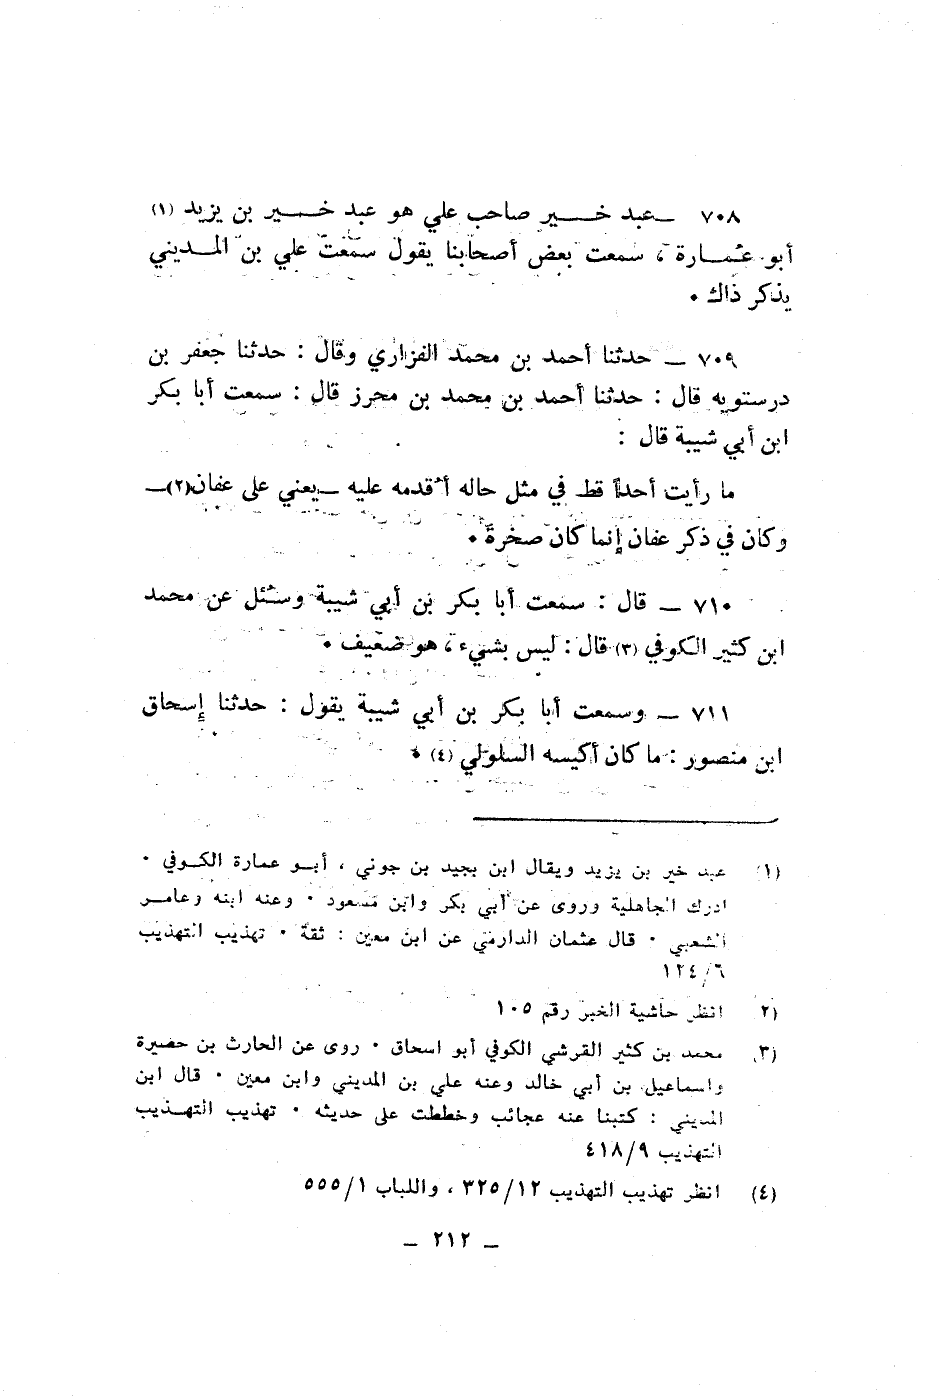 ٧٠٨ ــ عبد خير صاحب علي هو عبد خير بن يزيد (١)
أبو عمارة ، سمعت بعض أصحابنا يقول سمعت علي بن المديني
يذكر ذاك ٠
٧٠٩ ــ حدثنا أحمد بن محمد الفزاري وقال : حدثنا جعفر بن
درستويه قال : حدثنا أحمد بن محمد بن محرز قال : سمعت أبا بكر
ابن أبي شيبة قال :
ما رأيت أحداً قط في مثل حاله أقدمه عليه ــ يعني على عفان(٢)ــ
وكان في ذكر عفان إنما كان صخرة ٠
٧١٠ ــ قال : سمعت أبا بكر بن أبي شيبة وسئل عن محمد
ابن كثير الكوفي (٣) قال : ليس بشيء ، هو ضعيف ٠
٧١١ ــ وسمعت أبا بكر بن أبي شيبة يقول : حدثنا إسحاق
ابن منصور : ما كان أكيسه السلولي (٤) ٠
(١) عبد خير بن يزيد ويقال ابن بجيد بن جوني ، أبو عمارة الكوفي ٠
ادرك الجاهلية وروى عن أبي بكر وابن مسعود ٠ وعنه ابنه وعامر
الشعبي ٠ قال عثمان الدارمي عن ابن معين : ثقة ٠ تهذيب التهذيب
١٢٤/٦
(٢ انظر حاشية الخبر رقم ١٠٥
(٣) محمد بن كثير القرشي الكوفي أبو اسحاق ٠ روى عن الحارث بن حضيرة
واسماعيل بن أبي خالد وعنه علي بن المديني وابن معين ٠ قال ابن
المديني : كتبنا عنه عجائب وخططت على حديثه ٠ تهذيب التهذيب
التهذيب ٤١٨/٩
(٤) انظر تهذيب التهذيب ٣٢٥/١٢ ، واللباب ٥٥٥/١
ــ ٢١٢ ــ